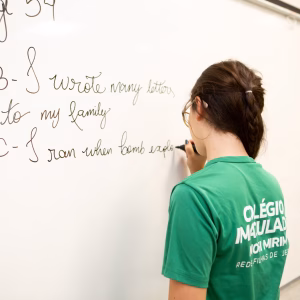 54
B- I wrote many letters
to my family
C- I ran when bomb explo
COLÉGIO
IMACULADA
MOGI MIRIM